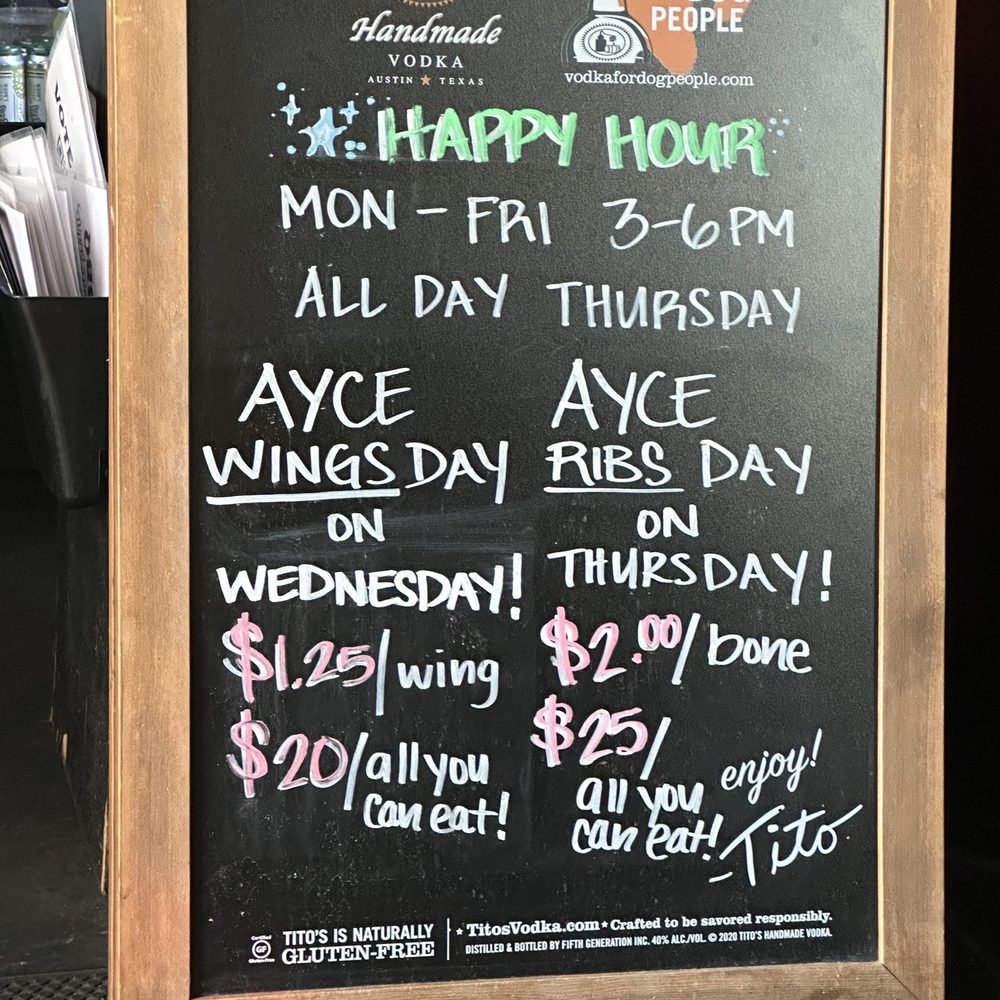 Handmade
VODKA
AUSTIN ★ TEXAS
PEOPLE
vodkafordogpeople.com
HAPPY HOUR
MON - FRI 3-6 PM
ALL DAY THURSDAY
AYCE
WINGS DAY
ON
WEDNESDAY!
$1.25/wing
$20/all you
can eat!
AYCE
RIBS DAY
ON
THURSDAY!
$2.00/bone
$25/
all you
can eat!
enjoy!
-Tito
Certified
GF
Gluten-Free
TITO'S IS NATURALLY
GLUTEN-FREE
★ TitosVodka.com ★ Crafted to be savored responsibly.
DISTILLED & BOTTLED BY FIFTH GENERATION INC. 40% ALC./VOL. © 2020 TITO'S HANDMADE VODKA.
VOTE